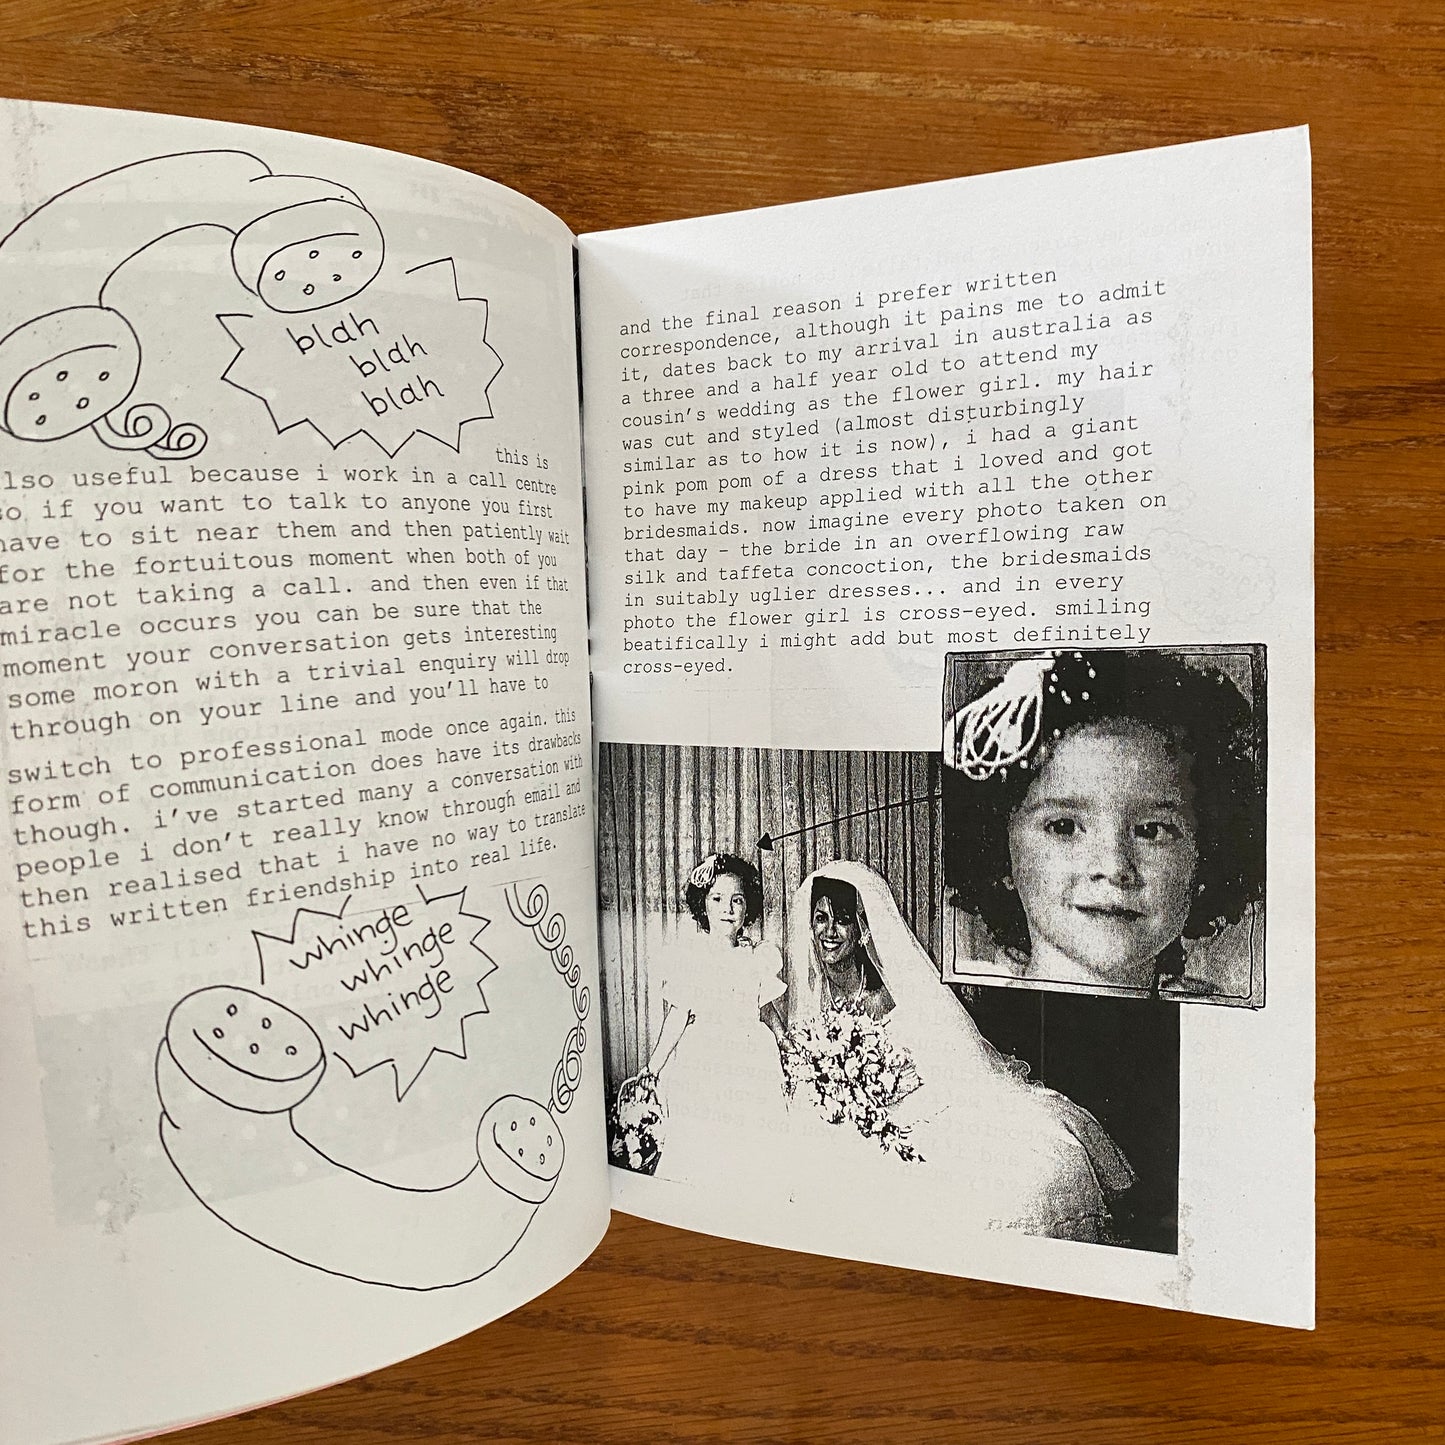 blah
blah
blah
this is
also useful because i work in a call centre
so if you want to talk to anyone you first
have to sit near them and then patiently wait
for the fortuitous moment when both of you
are not taking a call. and then even if that
miracle occurs you can be sure that the
moment your conversation gets interesting
some moron with a trivial enquiry will drop
through on your line and you'll have to
switch to professional mode once again. this
form of communication does have its drawbacks
though. i've started many a conversation with
people i don't really know through email and
then realised that i have no way to translate
this written friendship into real life.
whinge
whinge
whinge
and the final reason i prefer written
correspondence, although it pains me to admit
it, dates back to my arrival in australia as
a three and a half year old to attend my
cousin's wedding as the flower girl. my hair
was cut and styled (almost disturbingly
similar as to how it is now), i had a giant
pink pom pom of a dress that i loved and got
to have my makeup applied with all the other
bridesmaids. now imagine every photo taken on
that day – the bride in an overflowing raw
silk and taffeta concoction, the bridesmaids
in suitably uglier dresses... and in every
photo the flower girl is cross-eyed. smiling
beatifically i might add but most definitely
cross-eyed.